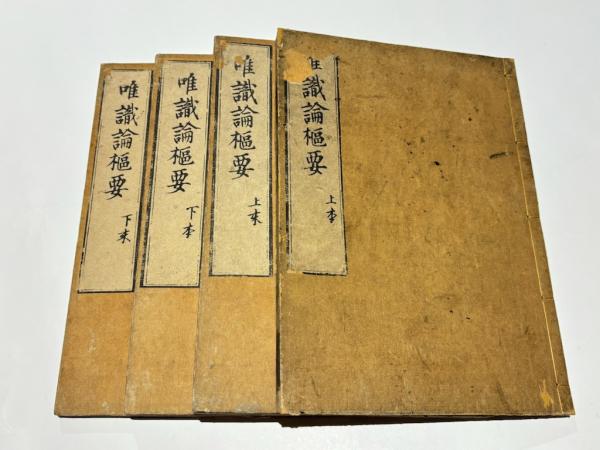 唯識論樞要
上本
唯識論樞要
上末
唯識論樞要
下本
唯識論樞要
下末